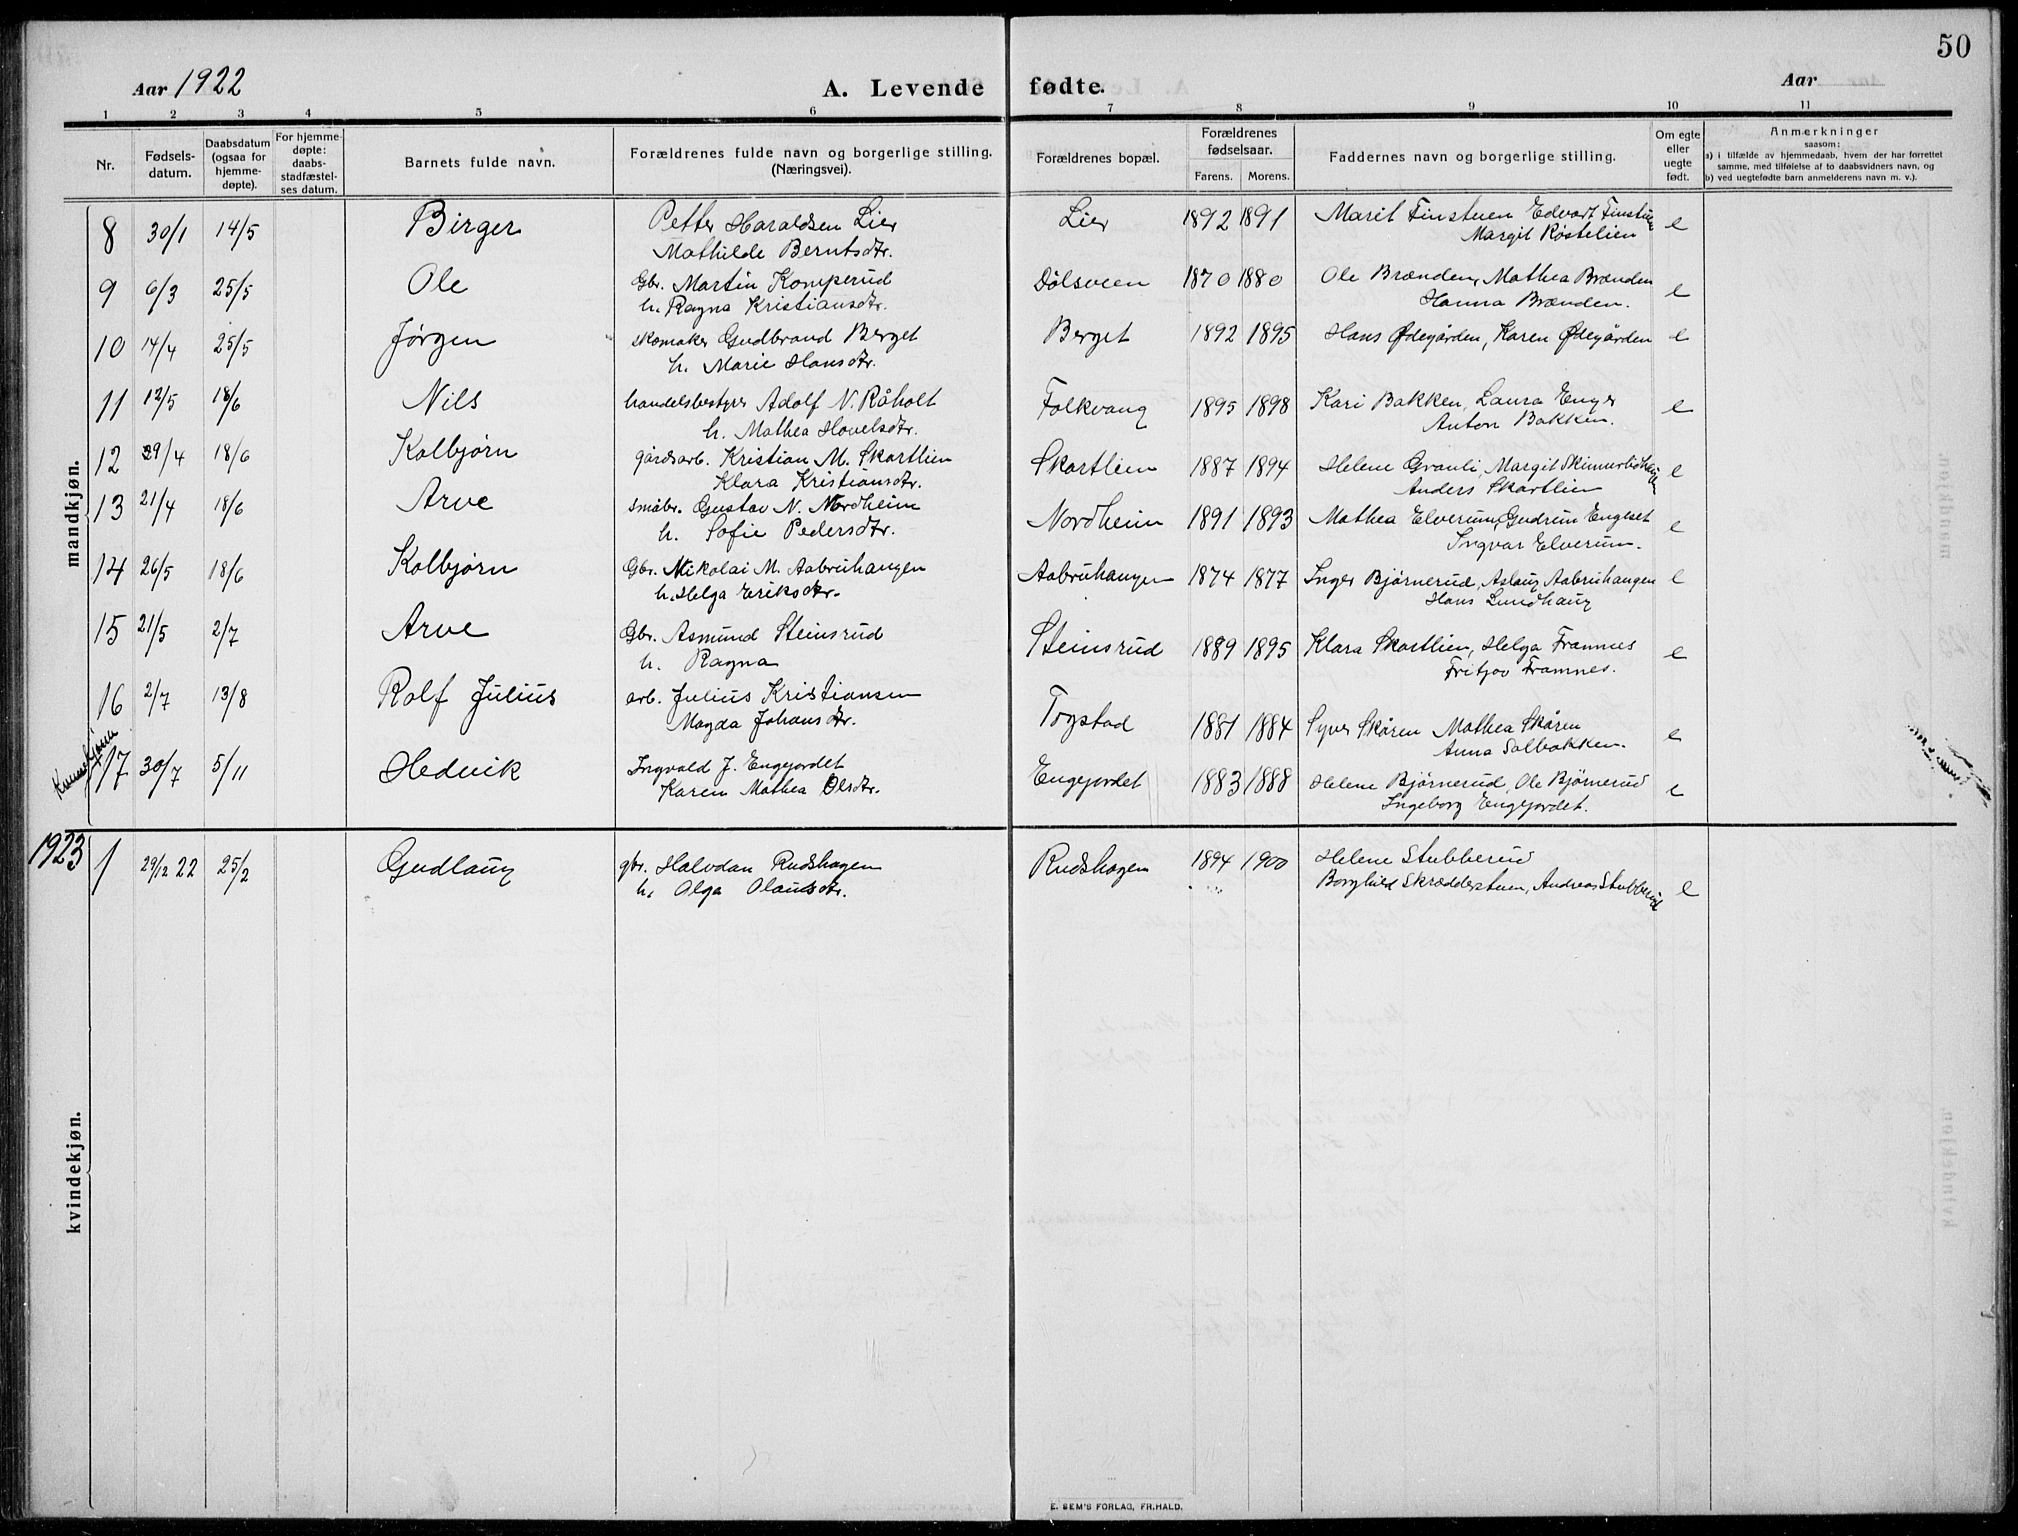 50
Aar 1922 A. Levende fødte. Aar
1 2 3 4 5 6 7 8 9 10 11
Nr. Fødsels-datum. Daabsdatum (ogsaa for hjemme-døpte). For hjemme-døpte: daabs-stadfæstel-ses datum. Barnets fulde navn. Forældrenes fulde navn og borgerlige stilling. (Næringsvei). Forældrenes bopæl. Forældrenes fødselsaar. Farens. Morens. Faddernes navn og borgerlige stilling. Om egte eller uegte født. Anmerkninger saasom: a) i tilfælde av hjemmedaab, hvem der har forrettet samme, med tilføielse af to daabsvidners navn, og b) ved uegtefødte barn anmelderens navn m. v.).
mandkjøn.
8 30/1 14/5 Birger Petter Haraldsen Lier Lier 1892 1891 Marit Finstuen Edvart Finstuen e
Mathilde Berntsdtr. Margit Røstelien
9 6/3 25/5 Ole Gbr. Martin Komperud Dølsveen 1870 1880 Ole Brænden, Mathea Brænden e
h. Ragna Kristiansdtr. Hanna Brænden.
10 14/4 25/5 Jørgen skomaker Gudbrand Berget Berget 1892 1895 Hans Ødegården, Karen Ødegården e
h. Marie Hansdtr.
11 12/5 18/6 Nils handelsbestyrer Adolf N. Råholt Folkvang 1895 1898 Kari Bakken, Laura Enger e
h. Mathea Hovelsdtr. Anton Bakken.
12 29/4 18/6 Kolbjørn gårdsarb. Kristian M. Skartlien Skartlien 1887 1894 Helene Granli, Margit e
Klara Kristiansdtr. Anders Skartlien
13 21/4 18/6 Arve småbr. Gustav N. Nordheim Nordheim 1891 1893 Mathea Elverum, Gudrun Engeset e
h. Sofie Pedersdtr. Ingvar Elverum.
14 26/5 18/6 Kolbjørn Gbr. Nikolai M. Aabruhaugen Aabruhaugen 1874 1877 Inger Bjørnerud, Aslaug Aabruhaugen e
h. Helga Eriksdtr. Hans Lundhaug
15 21/5 2/7 Arve Gbr. Asmund Steinsrud Steinsrud 1889 1895 Klara Skartlien, Helga Framnes e
h. Ragna Fritjov Framnes.
16 2/7 13/8 Rolf Julius arb. Julius Kristiansen Togstad 1881 1884 Syver Skåren Mathea Skåren e
Magda Johansdtr. Anna Solbakken.
Kvinnekjønn
17 30/7 5/11 Hedvik Ingvald J. Engejordet Engejordet 1883 1888 Helene Bjørnerud, Ole Bjørnerud e
Karen Mathea Olsdtr. Ingeborg Engejordet.
1923
1 29/12 22 25/2 Gudlaug gbr. Halvdan Rudshagen Rudshagen 1894 1900 Helene Stubberud
h. Olga Olausdtr. Borghild Skrædderstuen, Andreas Stubberud e
kvindekjøn.
E. SEM'S FORLAG, FR.HALD.